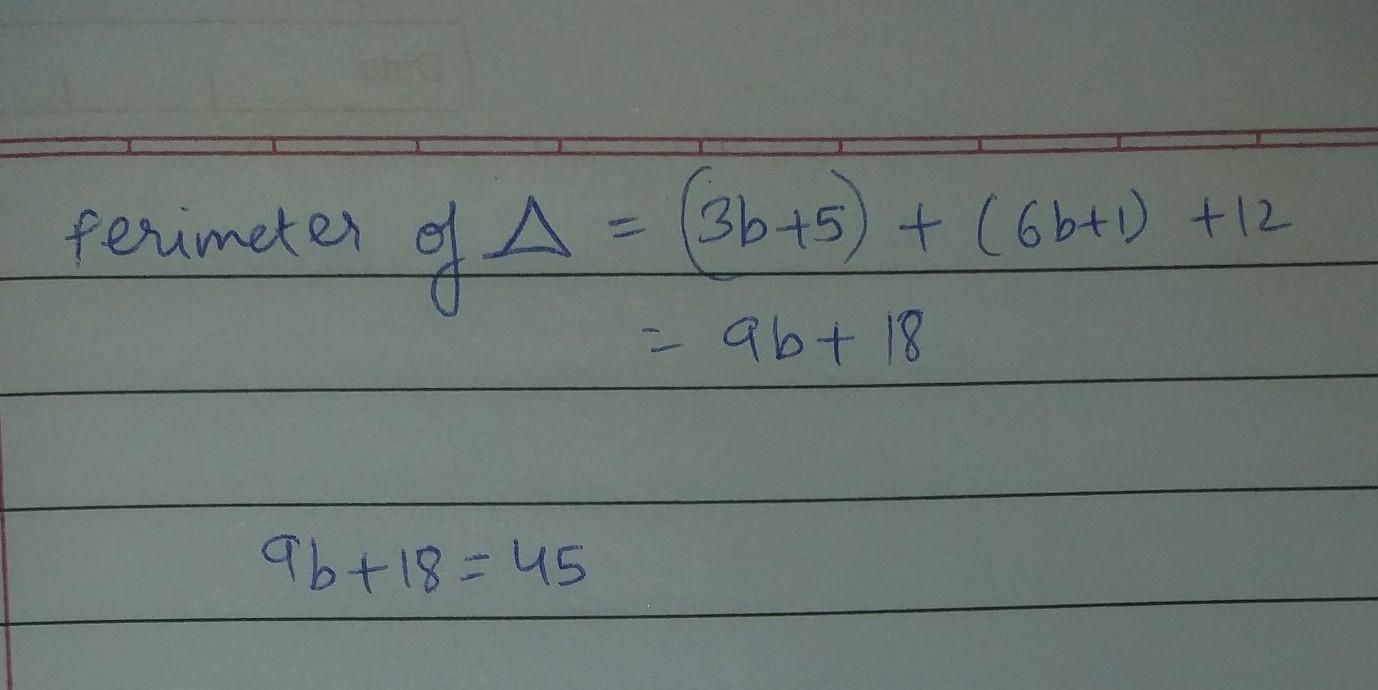 Perimeter of △ = (3b+5) + (6b+1) +12
= 9b+ 18
9b+18=45